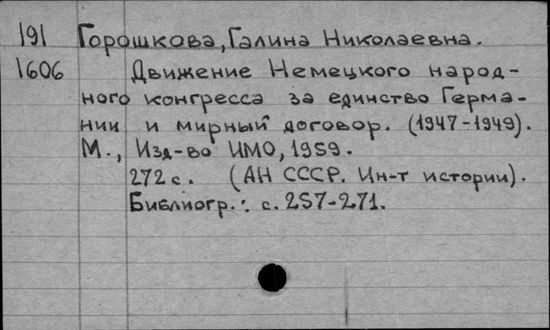 191 Горошкова, Галина Николаевна.
1606 Движение Немецкого народ-
ного конгресса за единство Герма-
нии и мирный договор. (1947-1949).
М., Изд-во ИМО, 1959.
272 с. (АН СССР. Ин-т истории).
Библиогр.: с. 257-271.